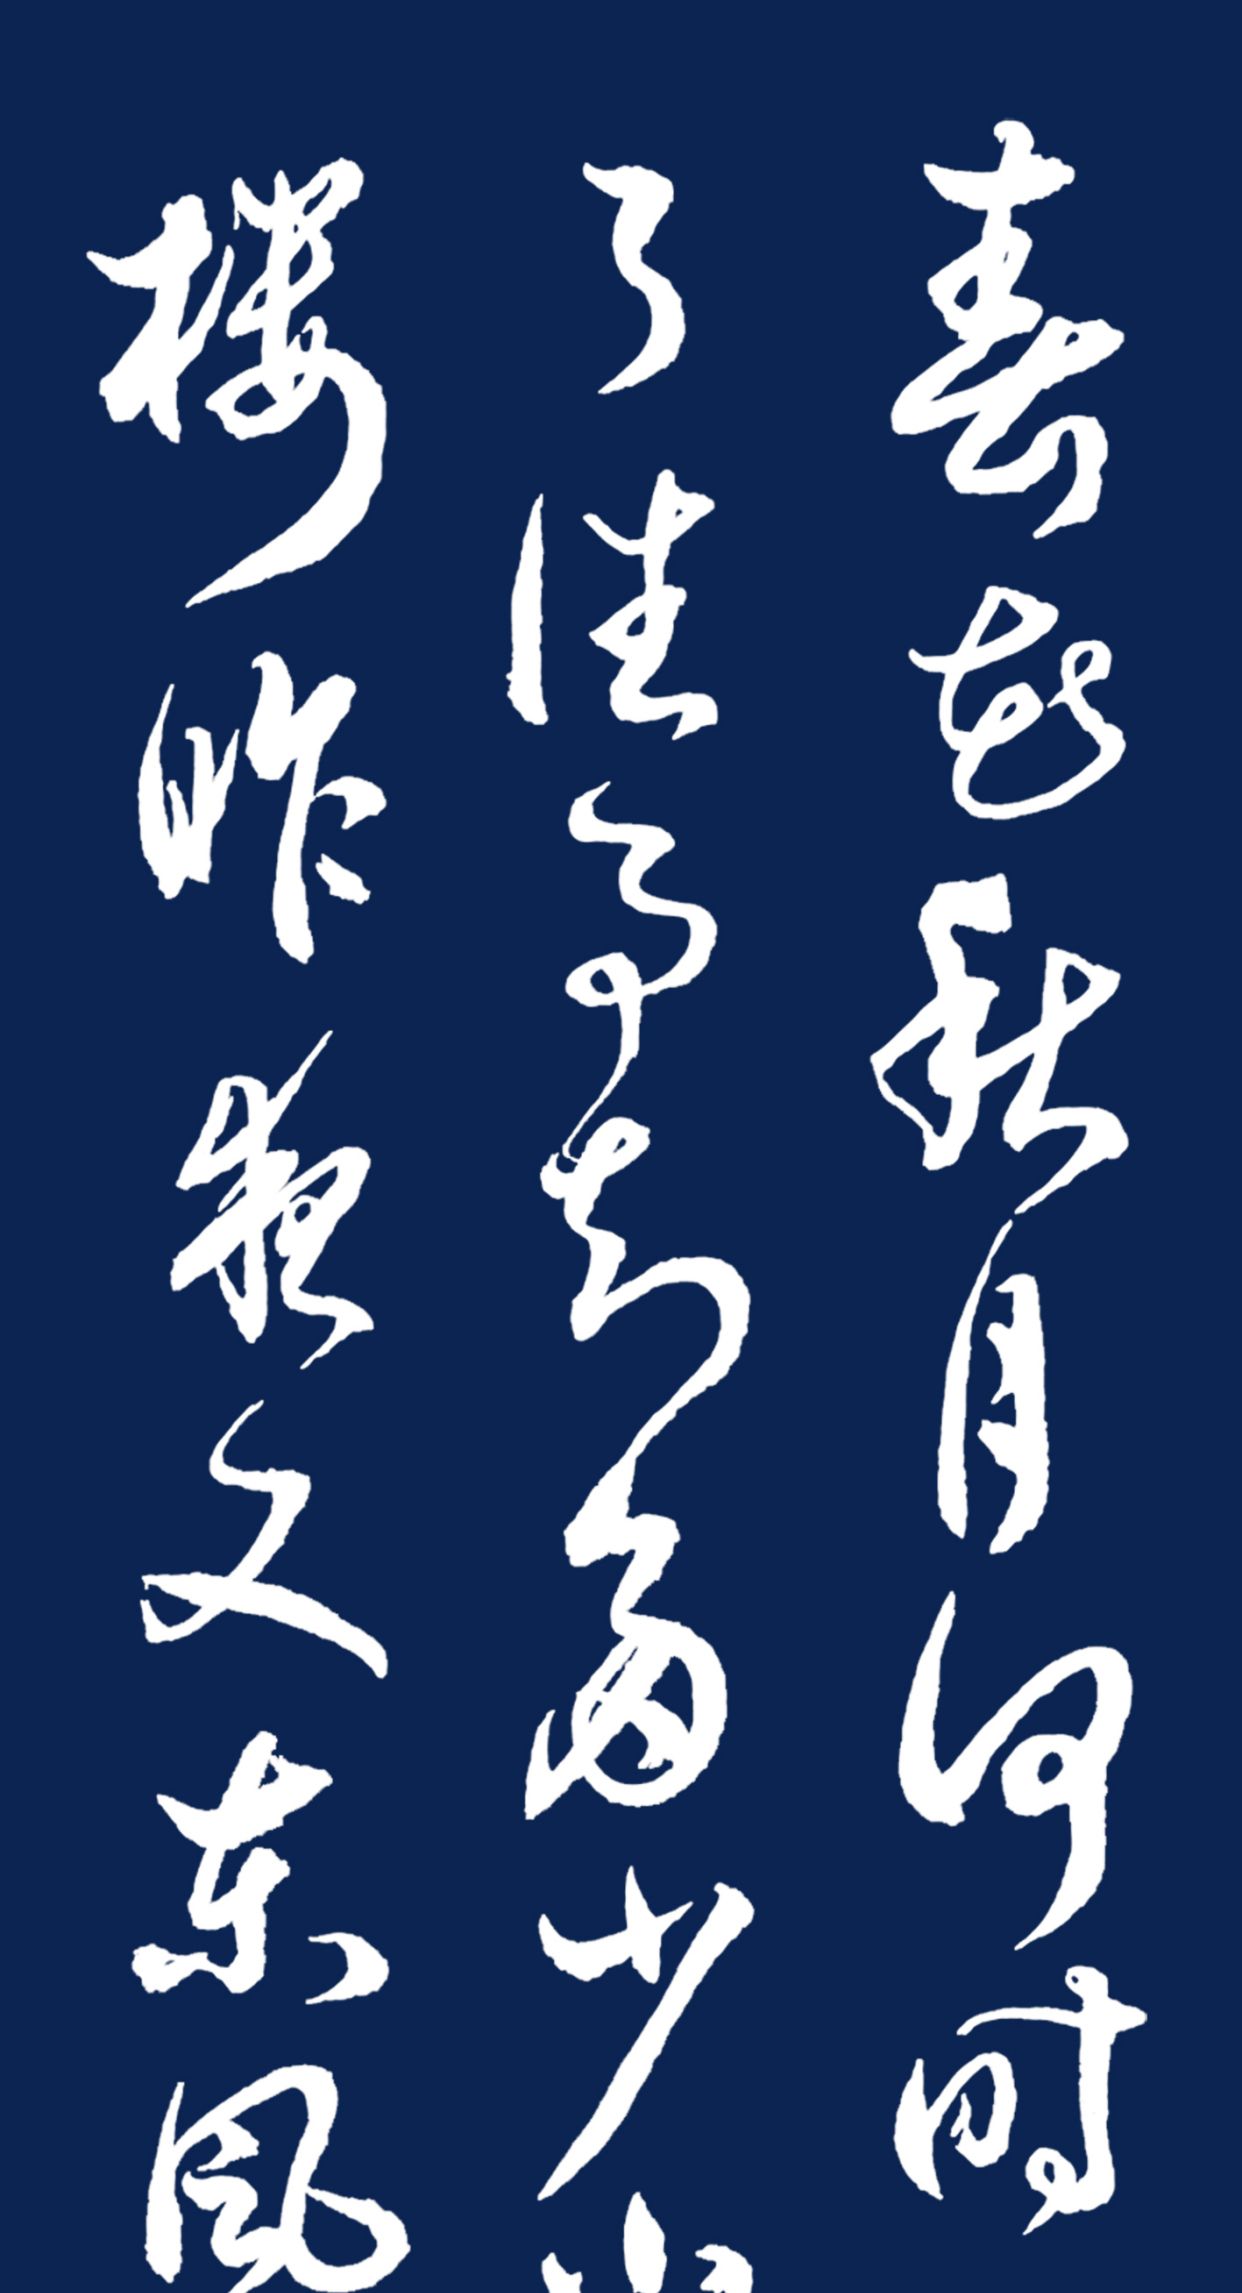 春花秋月何时
了往事知多少
楼昨夜又东风